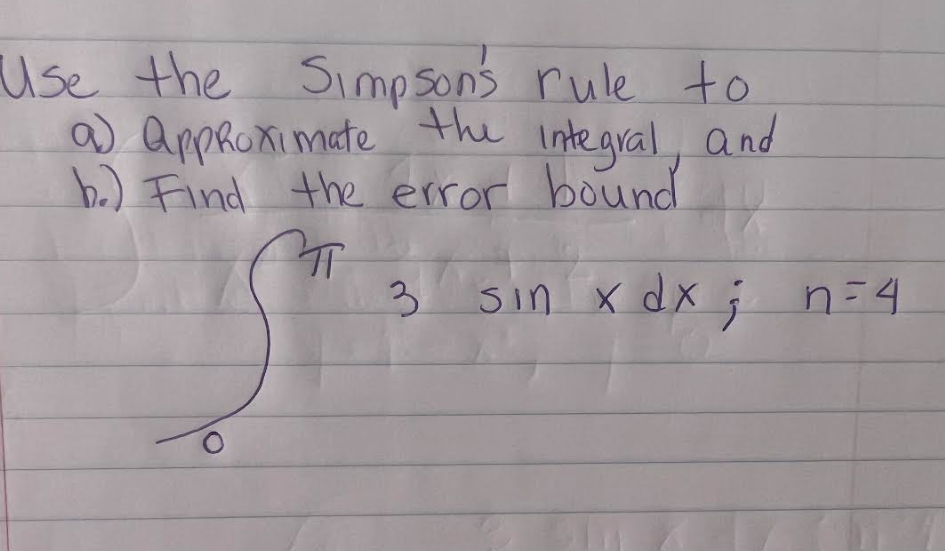 Use the Simpson's rule to
a) Approximate the integral, and
b.) Find the error bound
∫₀^π 3 sin x dx; n=4